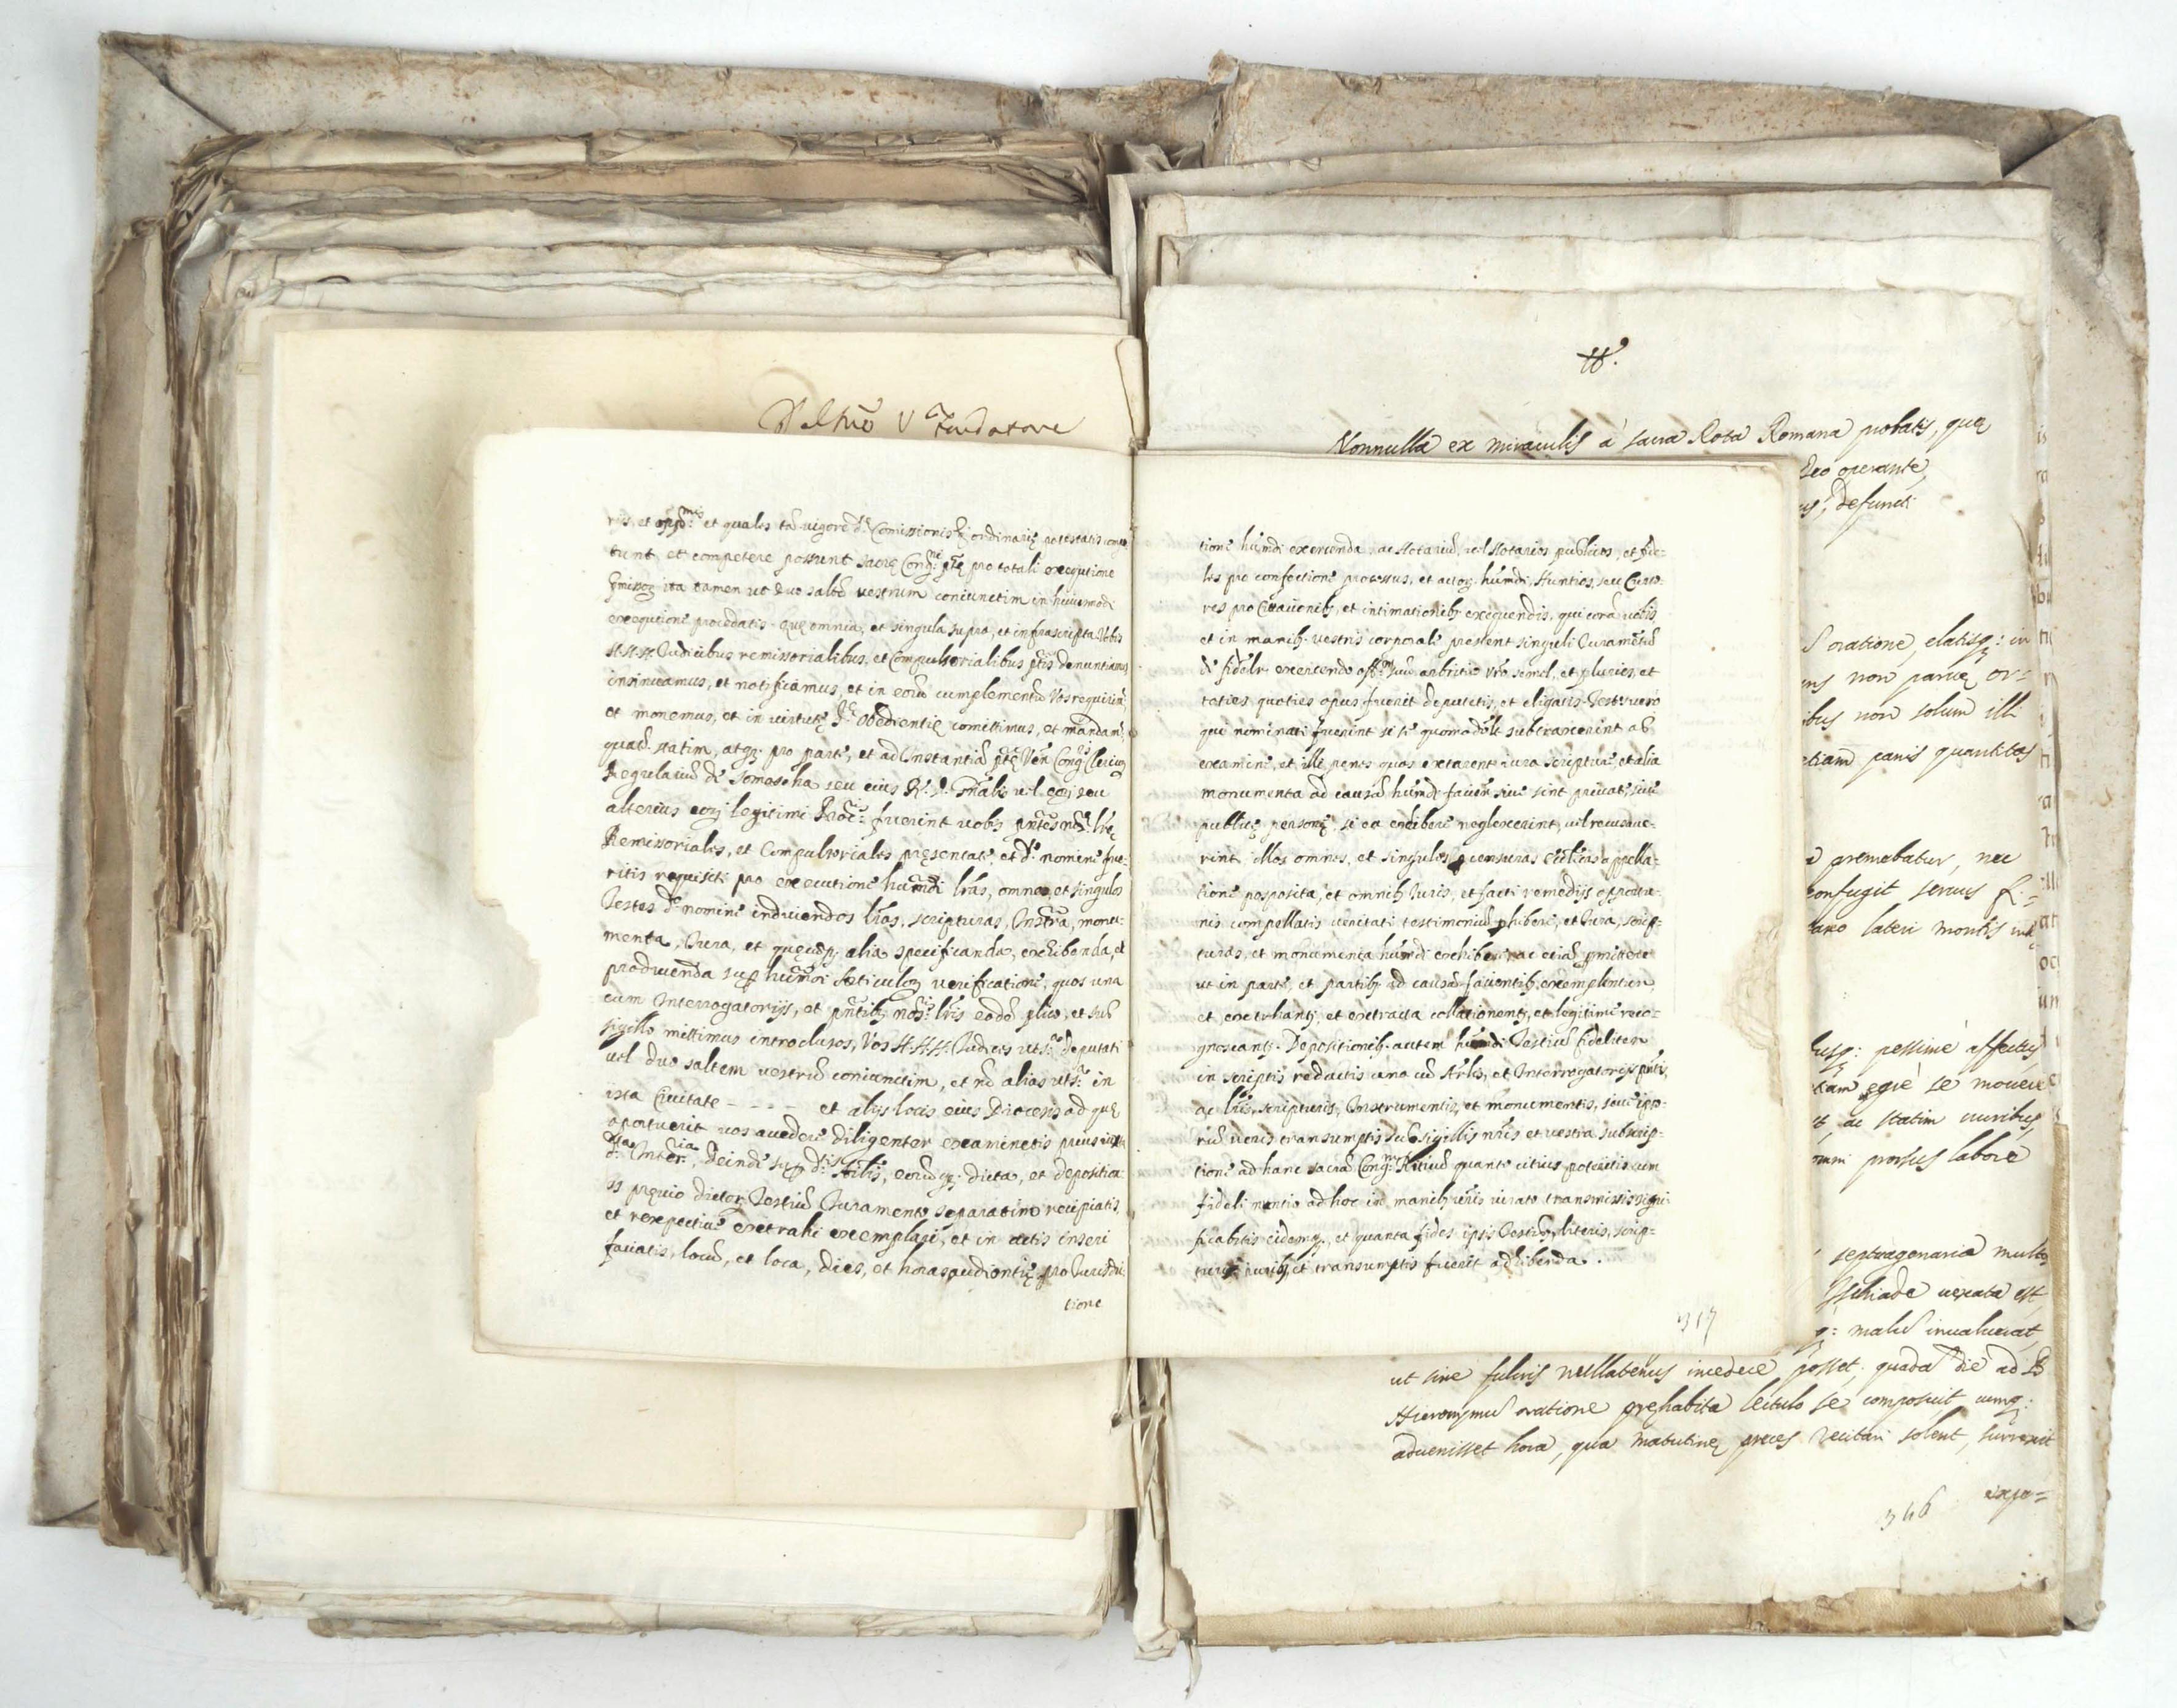 Del Nrō V Fundatore
riis, et opp.mis et quales tā vigore d.ę Comissionis, q̄ ordinarię potestatis conce
tunt et competere possunt sacrę Cong.nis p̄tę pro totali exequtione
p̄missoꝝ ita tamen ut duo saltē vestrum coniunctim in huiusmodi
exequtione procedatis. Quę omnia, et singula supra, et infrascripta Vobis
H.H.H. Judicibus remissorialibus, et Compulsorialibus p̄tis denuntiamus
insinuamus, et notificamus, et in eorū cumplementū Vos requirim,
et monemus, et in virtute S.ę Obedientię comittimus, et mandam,
quat.s statim, atq; pro parte, et ad Instantiā p̄tę Ven Cong.is Clericoꝝ
Regulariū de Somascha seu eius R. P. Gn̄alis vel eoꝝ seu
alterius eorū legitimi Proc.is fuerint vobis pn̄tes nr̄ę lr̄ę
Remissoriales, et Compulsoriales pręsentatę, et d.o nomine fue-
ritis requisiti pro executione hūmdi lr̄as, omnes, et singulos
Testes d.o nomine inducendos lr̄as, scripturas, Instrā, monu-
menta, Jura, et quęcūq; alia specificanda, exhibenda, et
producenda sup hūmdi Articuloꝝ verificatione, quos una
cum Interrogatorijs, et pn̄tib, nr̄is lr̄is eodē plico, et sub
sigillo mittimus introclusos, Vos H.H.H. Judices uts.a deputati
vel duo saltem vestrū coniunctim, et nō alias uts.a in
ista Civitate - - - - et alijs locis eius Diocesis ad quę
oportuerit vos accedere diligenter examinetis prius iuxta
d.a Inter.ia, deinde sup d.tis Arlis, eorūq; dicta, et depositio-
es pręvio dictoꝝ Testiū Juramento separatim recipiatis
et respective extrahi exemplari, et in actis inseri
faciatis, locū, et loca, dies, et horas audientię pro Jurisdi-
tione
tione hūmdi exercenda, ac Notariū, vel Notarios publicos, et fide-
les pro confectione processus, et actoꝝ hūmdi, Nuntios, seu Curso-
res pro Citationib, et intimationib exequendis, qui corā vobis,
et in manib. vestris corporale prestent singuli Juramētū
de fidelr exercendo off.m suū arbitrio vr̄o semel, et pluries, et
toties quoties opus fuerit deputetis, et eligatis. Testes vero
qui nominati fuerint si se quomodolt subtraxerint ab
examine, et illi penes quos extarent iura scripturę, et alia
monumenta ad causā hūmdi faven sive sint privatę, sive
publicę personę, si ea exhibere neglexerint, vel recusave-
rint. Illos omnes, et singulos p censuras ecclicas appella-
tione posposita, et omnib Juris, et facti remedijs opportu-
nis compellatis veritati testimoniū phibere, et Jura, scrip-
turas, et monumenta hūmdi exhibere, ac etiā p̄mittere
ut in parte, et partib ad causā faventib, exemplentur,
et extrhant, et extracta collationent, et legitime reco-
gnoscant. Depositionib. autem hūmdi Testiū fideliter
in scriptis redactis una cū Arlis, et Interrogatorijs pn̄tis,
ac lr̄is, scripturis, Instrumentis, et monumentis, seu ipso-
rū veris transumptis sub sigillis nr̄is et vestra subscrip-
tione ad hanc sacrā Cong.m Rituū quanto citius poteritis cum
fideli nuntio ad hoc in manib vr̄is iurato transmissis signi-
ficabitis eidemq; et quanta fides ipsis Testib, literis, scrip-
turis, iurib, et transumptis fuerit adhibenda.
317
#.
Nonnulla ex miraculis à sacra Rota Romana probatis, quę
Deo operante,
us, defuncti
S oratione, elatisq: in
ens non parvę or=
ibus non solum illi
etiam panis quantitas
premebatur, nec
confugit servus f.=
axo lateri montis
usq: pessimè affectus
tam egrè se movere
ac statim viribus
omni prorsus labore
septuagenaria multos
Ischiade vexata est
q: malū invaluerat,
ut sine fulcris nullatenus incedere posset, quadā die ad B
Hieronymū oratione pręhabita lectulo se composuit, cumq:
advenisset hora, qua matutinę preces recitari solent, surrexit
expe=
346